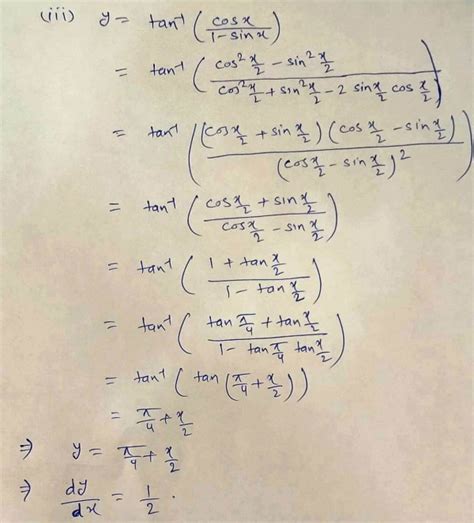 (iii) y = tan⁻¹ ( cos x / 1 - sin x )
= tan⁻¹ ( cos² x/2 - sin² x/2 / cos² x/2 + sin² x/2 - 2 sin x/2 cos x/2 )
= tan⁻¹ ( (cos x/2 + sin x/2) (cos x/2 - sin x/2) / (cos x/2 - sin x/2)² )
= tan⁻¹ ( cos x/2 + sin x/2 / cos x/2 - sin x/2 )
= tan⁻¹ ( 1 + tan x/2 / 1 - tan x/2 )
= tan⁻¹ ( tan π/4 + tan x/2 / 1 - tan π/4 tan x/2 )
= tan⁻¹ ( tan ( π/4 + x/2 ) )
= π/4 + x/2
⇒ y = π/4 + x/2
⇒ dy/dx = 1/2 .